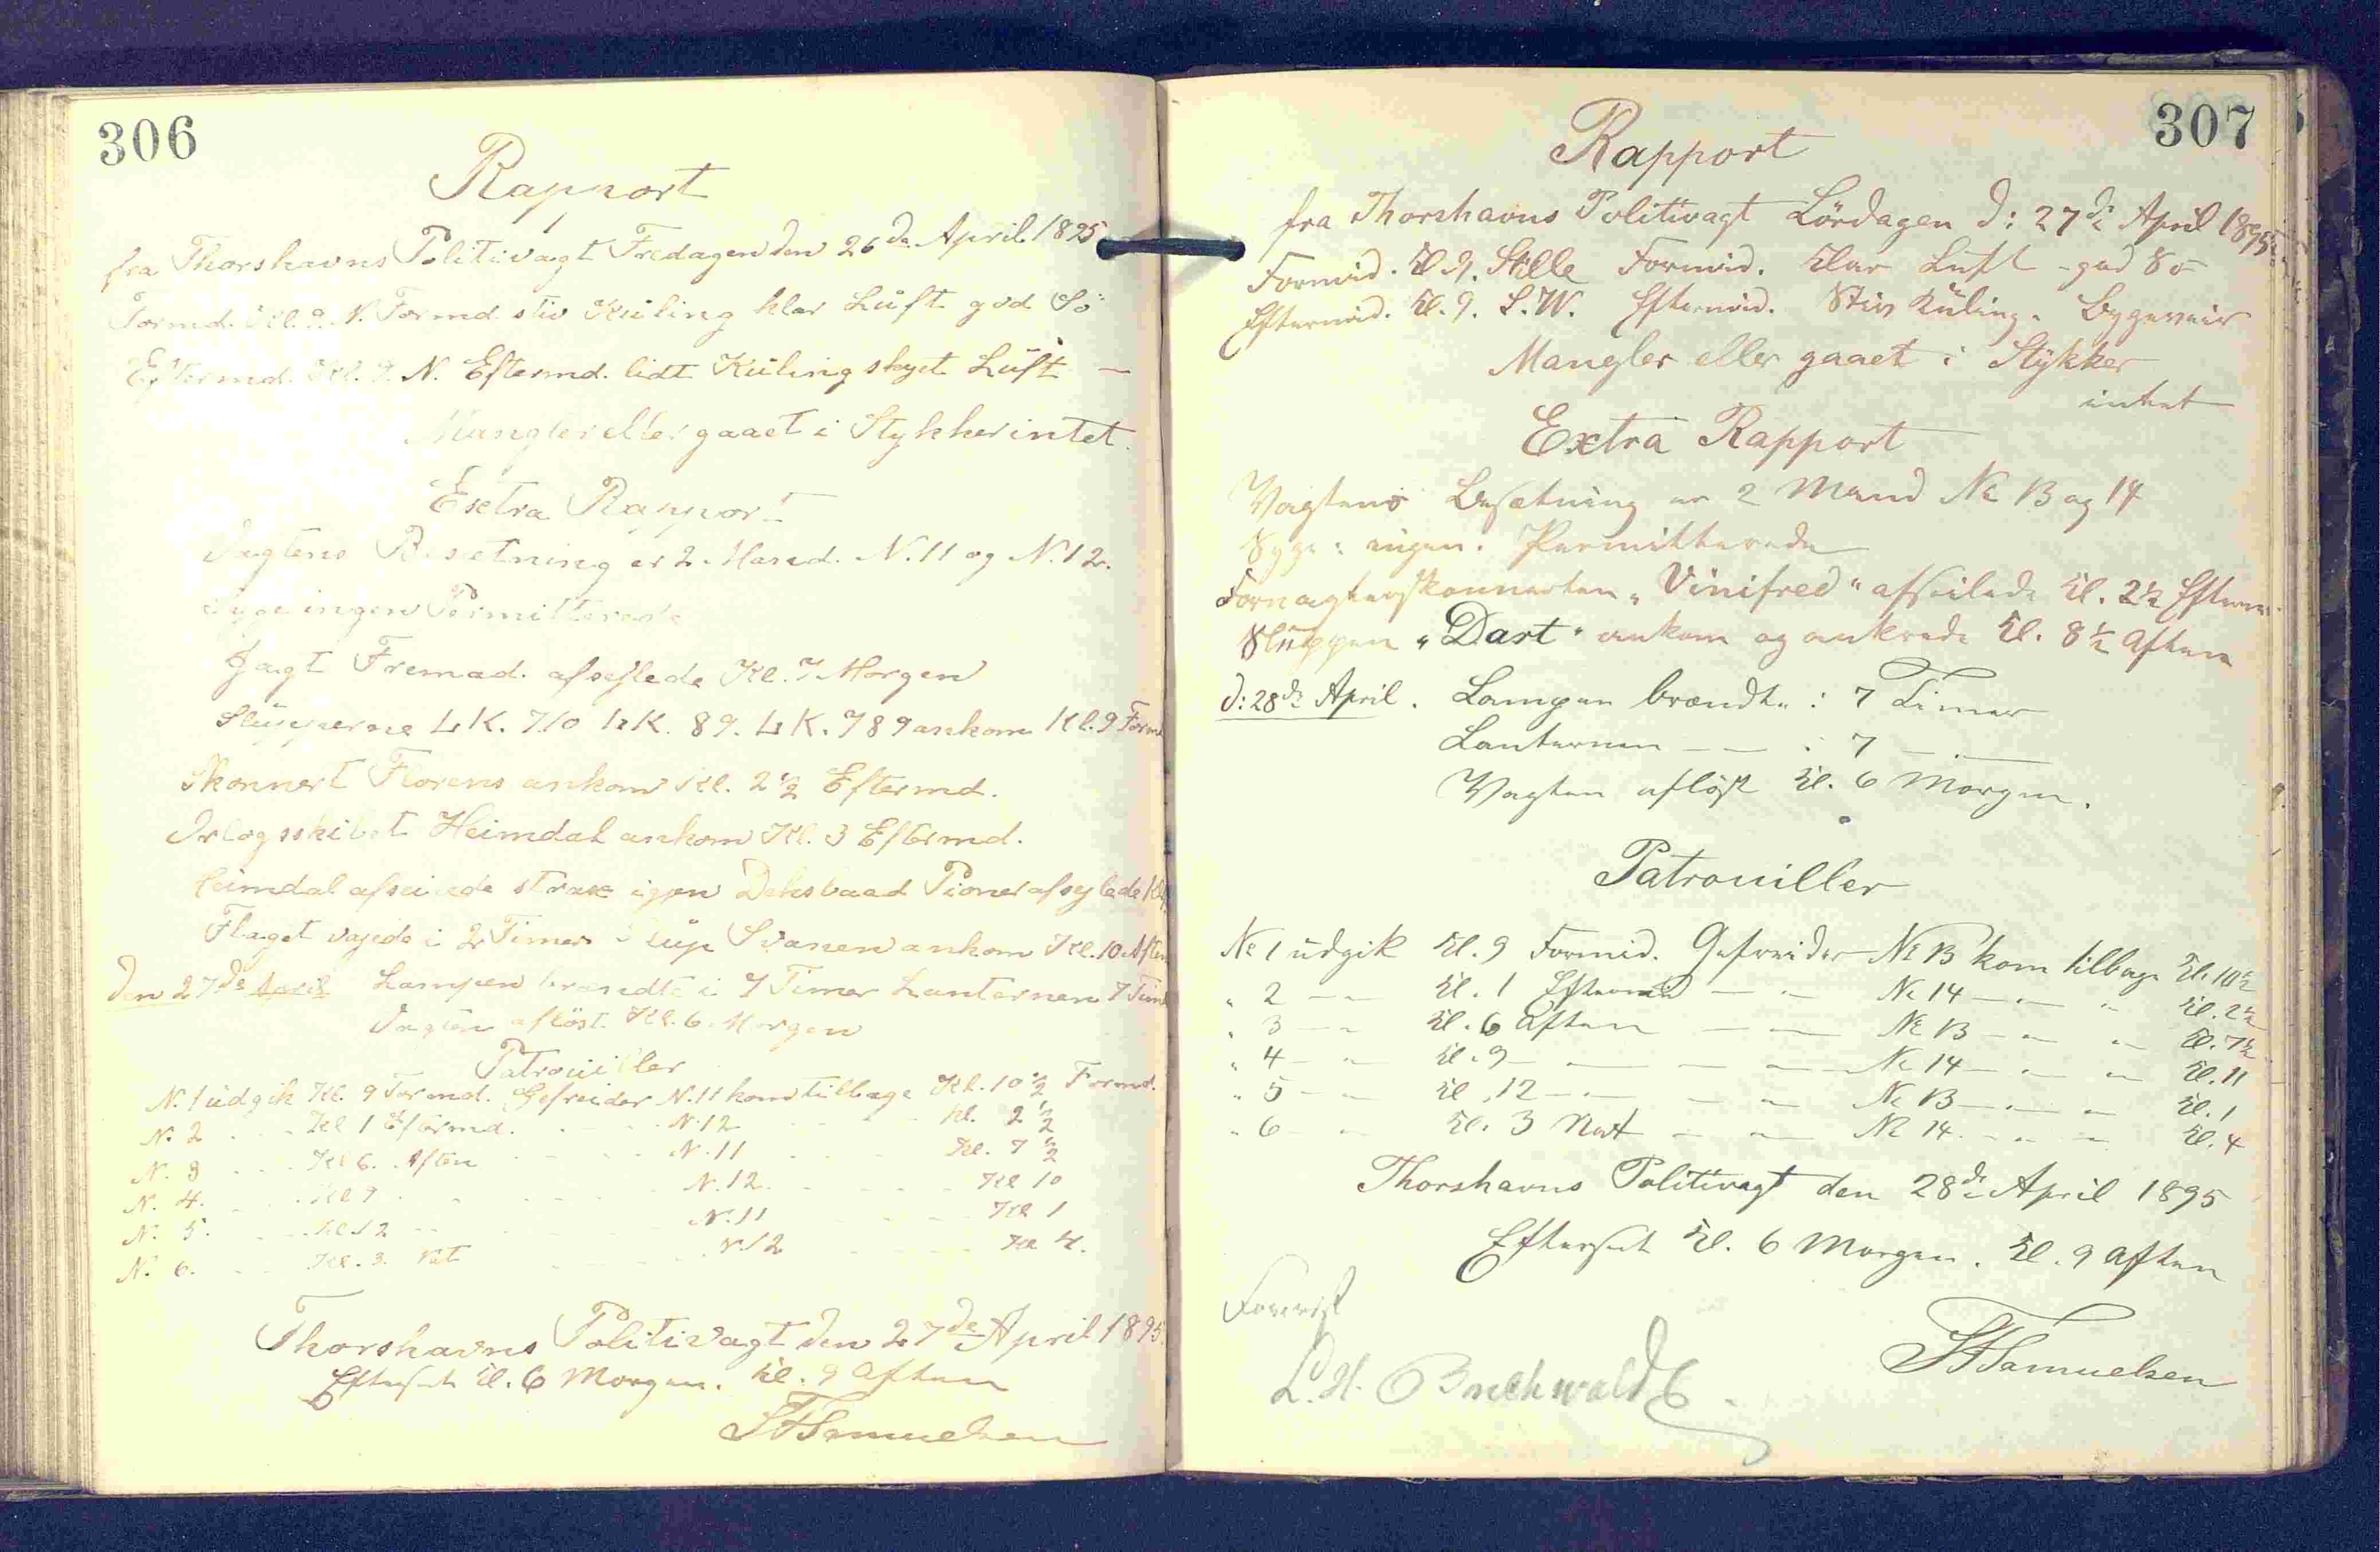 306
Rapport
fra Thorshavns Politivagt Fredagen den 26de April 1895
Formd. Kl. 9. N. Formd. stiv Kuling klar Luft god Sö
Eftermd. Kl. 9. N. Eftermd. lidt Kuling skyet Luft —
Mangler eller gaaet i Stykker intet.
Extra Rapport
Vagtens Besetning er 2 Mand. N. 11 og N. 12.
Syge ingen Permitterede
Jagt Fremad. afsejlede Kl. 7 Morgen
Slupperne LK. 710 LK. 89. LK. 789 ankom Kl. 9 Formd
Skonnert Florens ankom Kl. 2½ Eftermd.
Orlogsskibet Heimdal ankom Kl. 3 Eftermd.
Heimdal afseilede strax igjen Deksbaad Pioner afsejlede
Flaget vajede i 2 Timer Slup Svanen ankom Kl. 10 Aften
Den 27de April Lampen brændte i 7 Timer Lanternen 7 Tim
Vagten aflöst Kl. 6 Morgen
Patrouiller
N. 1 udgik Kl. 9 Formd. Gefreider N. 11 kom tilbage Kl. 10½ Formd.
N. 2 Kl 1 Eftermd. N. 12 Kl. 2½
N. 3 Kl 6. Aften N. 11 Kl. 7½
N. 4. Kl 9 N. 12. Kl 10
N. 5. Kl. 12 N. 11 Kl 1
N. 6. Kl. 3. Nat N. 12 Kl 4.
Thorshavns Politivagt den 27de April 1895.
Efterset Kl. 6 Morgen. Kl. 9 Aften
Samuelsen
307
Rapport
fra Thorshavns Politivagt Lördagen d: 27de April 1895
Formid. Kl 9. Stille Formid. Klar Luft god Sö
Eftermid. Kl. 9. S.W. Eftermid. Stiv Kuling. Bygeveir
Mangler eller gaaet i Stykker
intet
Extra Rapport
Vagtens Besætning er 2 Mand No 13 og 14
Syge: ingen. Permitterede
Forvagterskonnerten „Vinifred" afseilede Kl. 2½ Efterm.
Sluppen „Dart" ankom og ankrede Kl. 8½ Aften
d: 28de April. Lampen brændte: 7 Timer
Lanternen — — : 7 — —
Vagten aflöst Kl. 6 Morgen.
Patrouiller
No 1 udgik Kl. 9 Formid. Gefreider No 13 kom tilbage Kl. 10½
" 2 — — Kl. 1 Eftermid — — No 14 — — " Kl. 2½
" 3 — — Kl. 6 Aften — — No 13 — — — Kl. 7½
" 4 — — Kl. 9 — — — — No 14 — — — Kl. 11
" 5 — — Kl. 12 — — — — No 13 — — — Kl. 1
" 6 — — Kl. 3 Nat — — No 14 — — — Kl. 4
Thorshavns Politivagt den 28de April 1895
Efterset Kl. 6 Morgen. Kl. 9 Aften
Forevist
Samuelsen
L. H. Buchwaldt